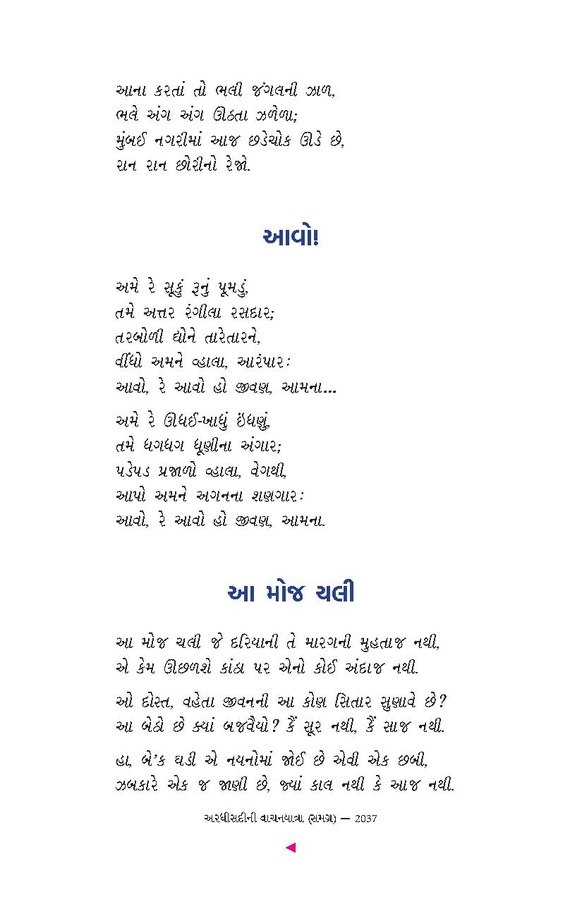 આના કરતાં તો ભલી જંગલની ઝાળ,
ભલે અંગ અંગ ઊઠતા ઝળેળા;
મુંબઈ નગરીમાં આજ છડેચોક ઊડે છે,
રાન રાન છોરીનો રેજો.
આવો!
અમે રે સૂકું રૂનું પૂમડું,
તમે અત્તર રંગીલા રસદાર;
તરબોળી દ્યોને તારેતારને,
વીંધો અમને વ્હાલા, આરંપારઃ
આવો, રે આવો હો જીવણ, આમના...
અમે રે ઊધઈ-ખાધું ઇંધણું,
તમે ધગધગ ધૂણીના અંગાર;
પડેપડ પ્રજાળો વ્હાલા, વેગથી,
આપો અમને અગનના શણગારઃ
આવો, રે આવો હો જીવણ, આમના.
આ મોજ ચલી
આ મોજ ચલી જે દરિયાની તે મારગની મુહતાજ નથી,
એ કેમ ઊછળશે કાંઠા પર એનો કોઈ અંદાજ નથી.
ઓ દોસ્ત, વહેતા જીવનની આ કોણ સિતાર સુણાવે છે?
આ બેઠો છે ક્યાં બજવૈયો? કૈં સૂર નથી, કૈં સાજ નથી.
હા, બે'ક ઘડી એ નયનોમાં જોઈ છે એવી એક છબી,
ઝબકારે એક જ જાણી છે, જ્યાં કાલ નથી કે આજ નથી.
અરધીસદીની વાચનયાત્રા (સમગ્ર) — 2037